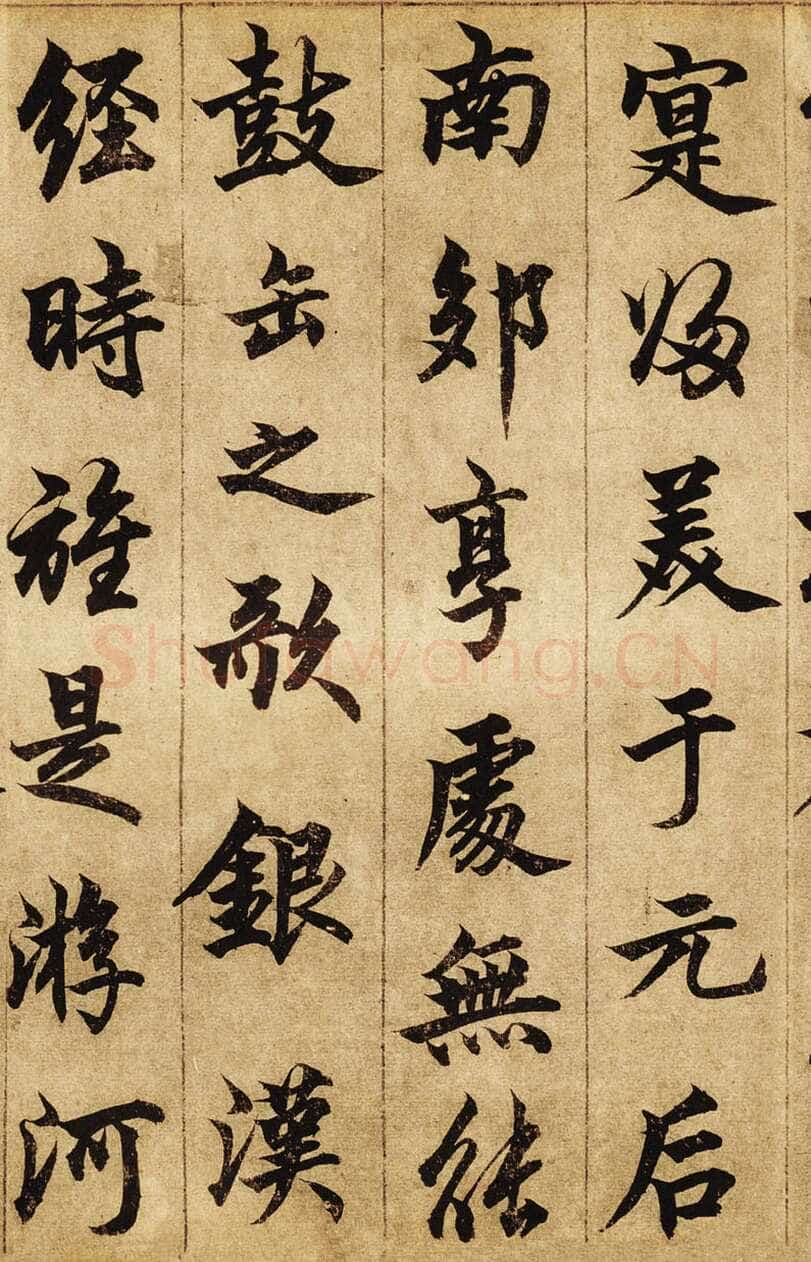 寔歸美于元后
南郊享處無能
鼓缶之歌銀漢
經時是游河
Shufawang.CN